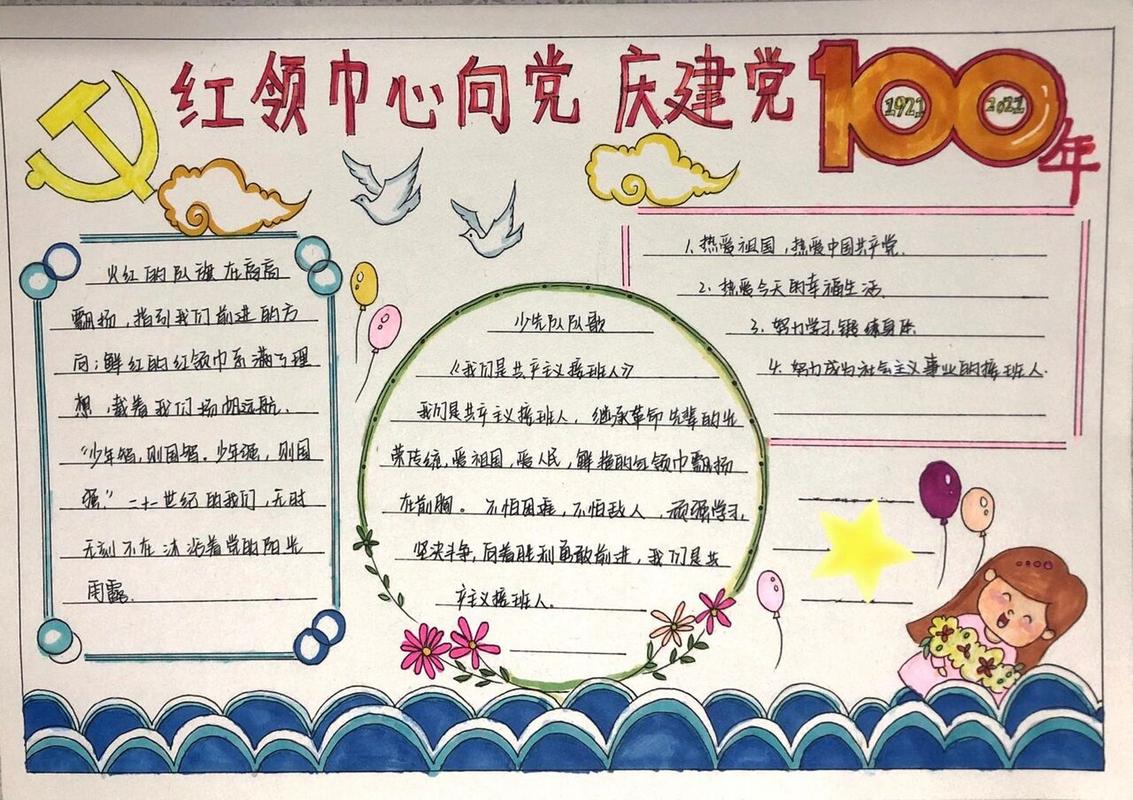 红领巾心向党 庆建党100年
1921 2021
火红的队旗在高高
飘扬,指引我们前进的方
向;鲜红的红领巾系满了理
想,载着我们扬帆远航.
“少年智,则国智.少年强,则国
强.”二十一世纪的我们,无时
无刻不在沐浴着党的阳光
雨露.
少先队队歌
《我们是共产主义接班人》
我们是共产主义接班人,继承革命先辈的光
荣传统,爱祖国,爱人民,鲜艳的红领巾飘扬
在前胸。不怕困难,不怕敌人,顽强学习,
坚决斗争,向着胜利勇敢前进,我们是共
产主义接班人.
1.热爱祖国,热爱中国共产党.
2.热爱今天的幸福生活.
3.努力学习,锻炼身体
4.努力成为社会主义事业的接班人.